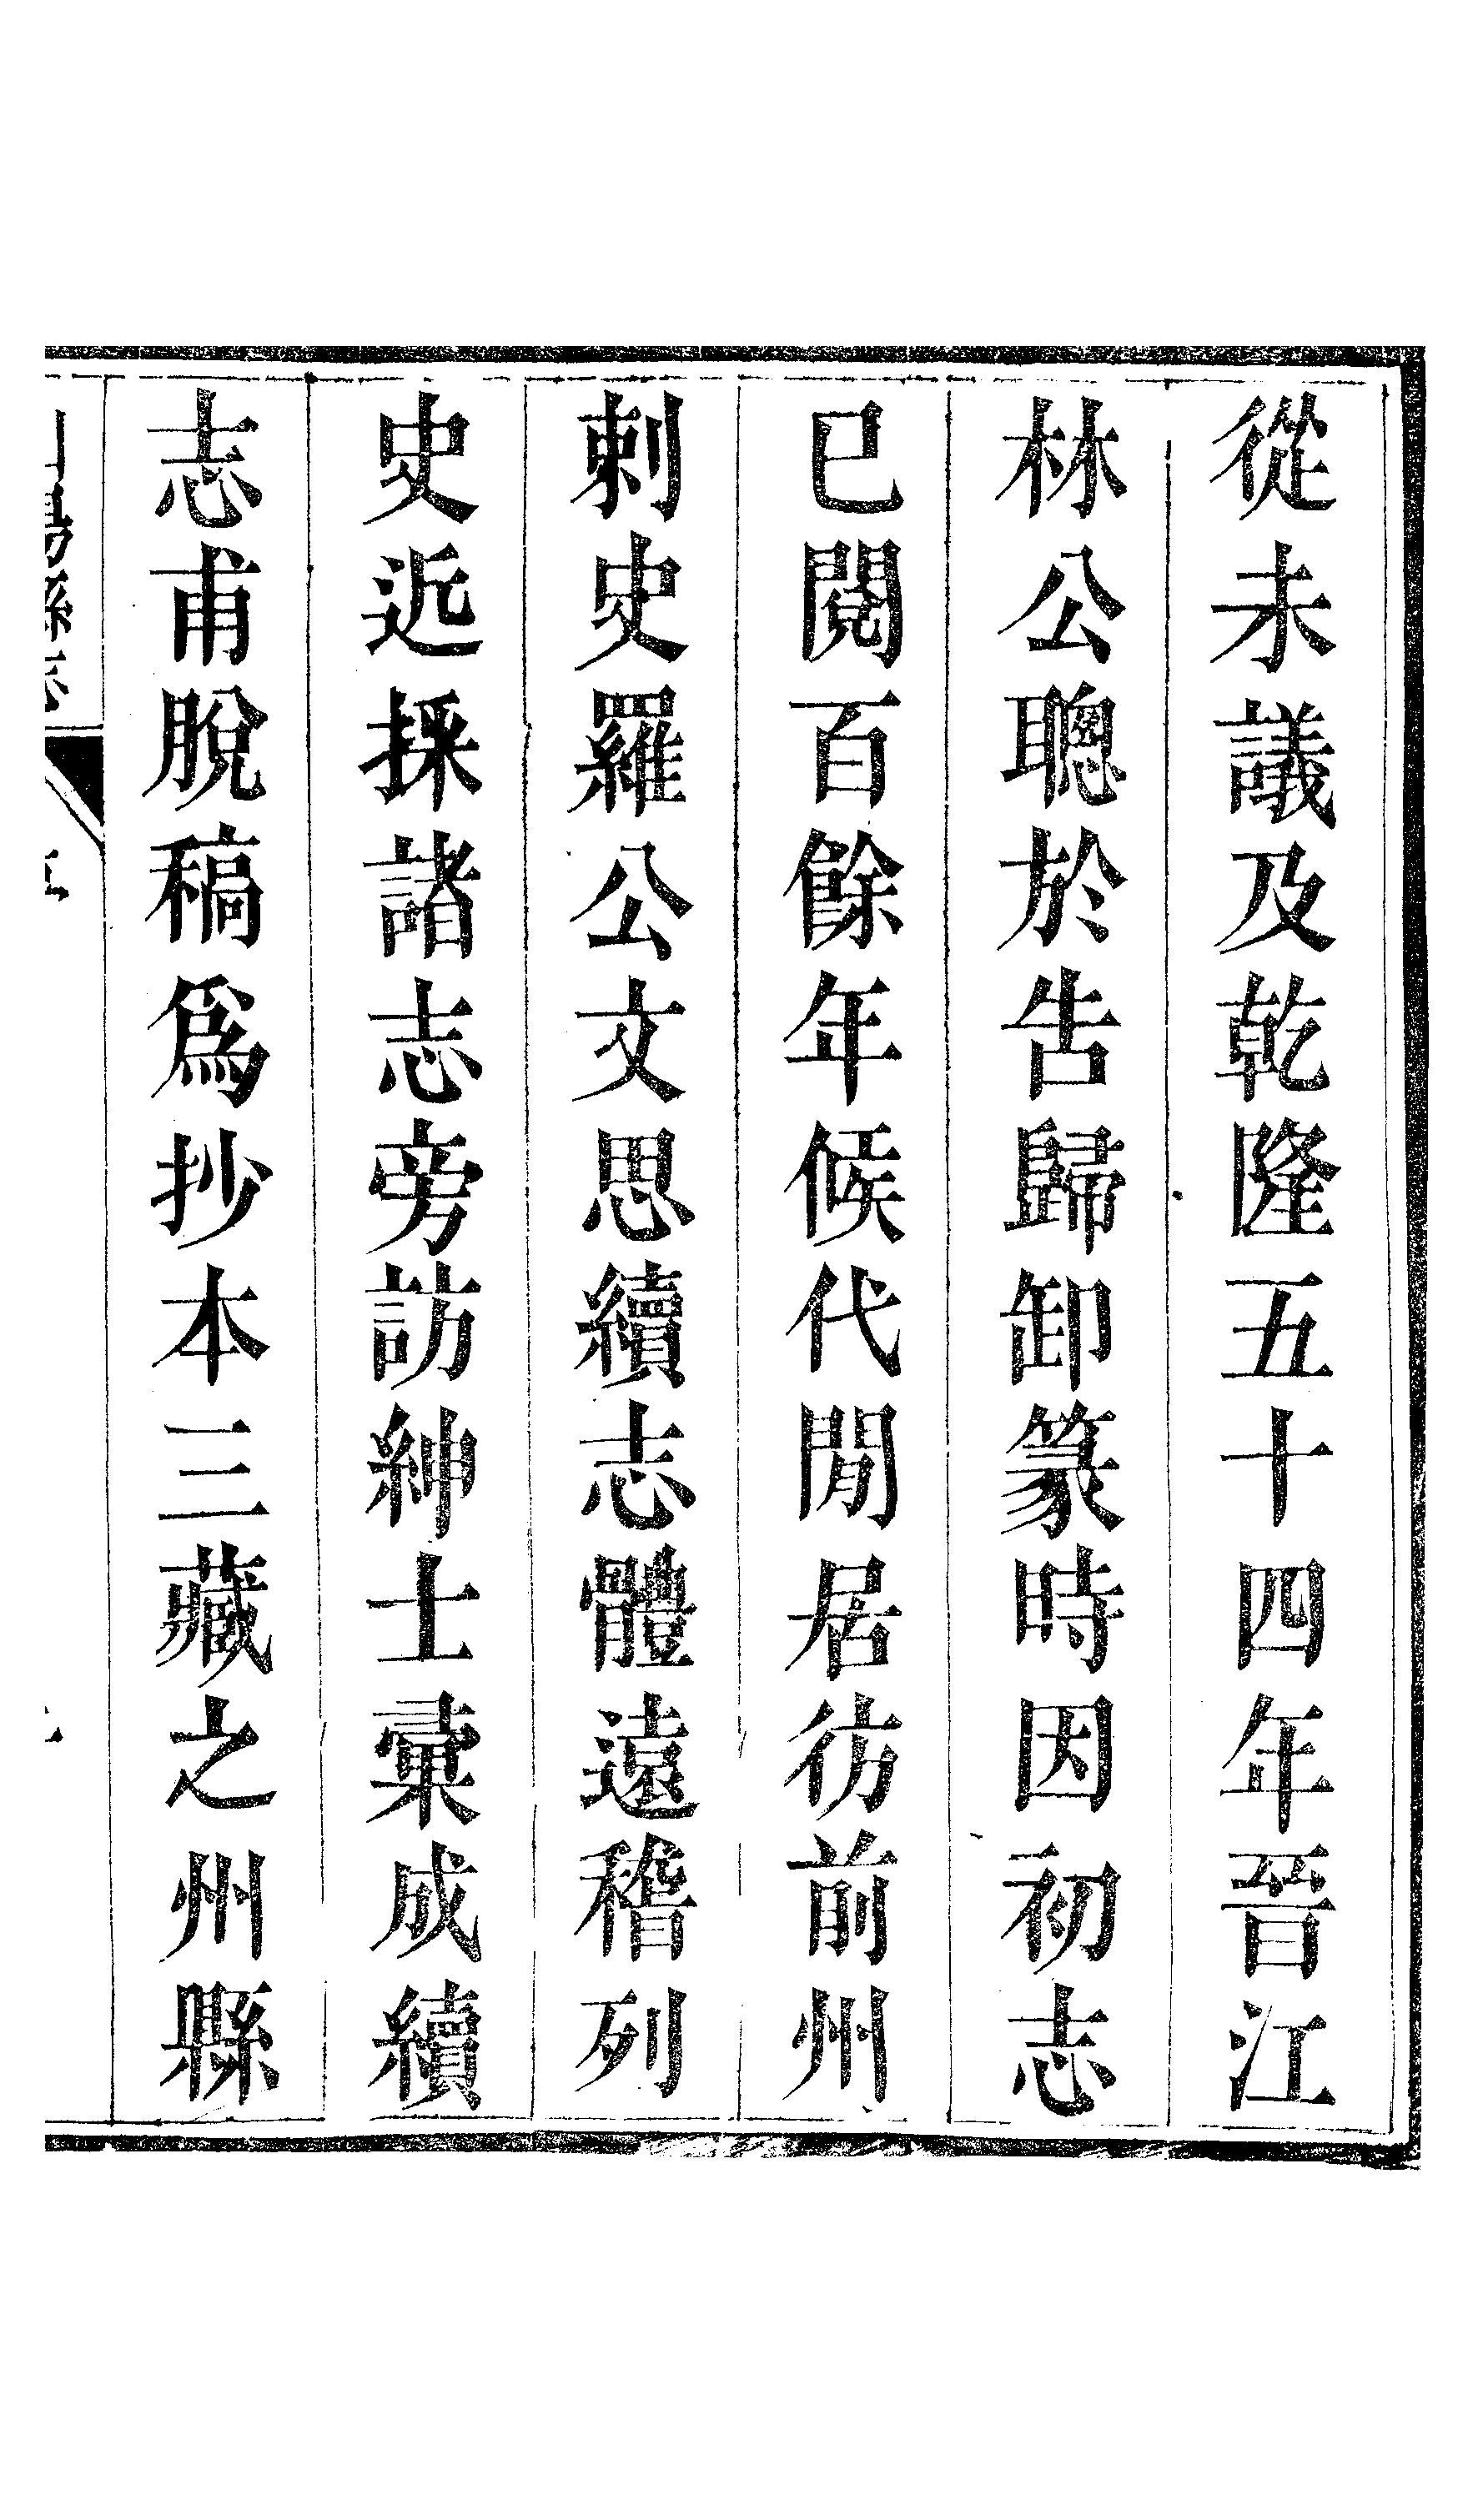 從未議及乾隆五十四年晉江
林公聰於告歸卸篆時因初志
已閱百餘年候代閒居彷前州
刺史羅公文思續志體遠稽列
史近採諸志旁訪紳士彙成續
志甫脫稿爲抄本三藏之州縣
陽縣志